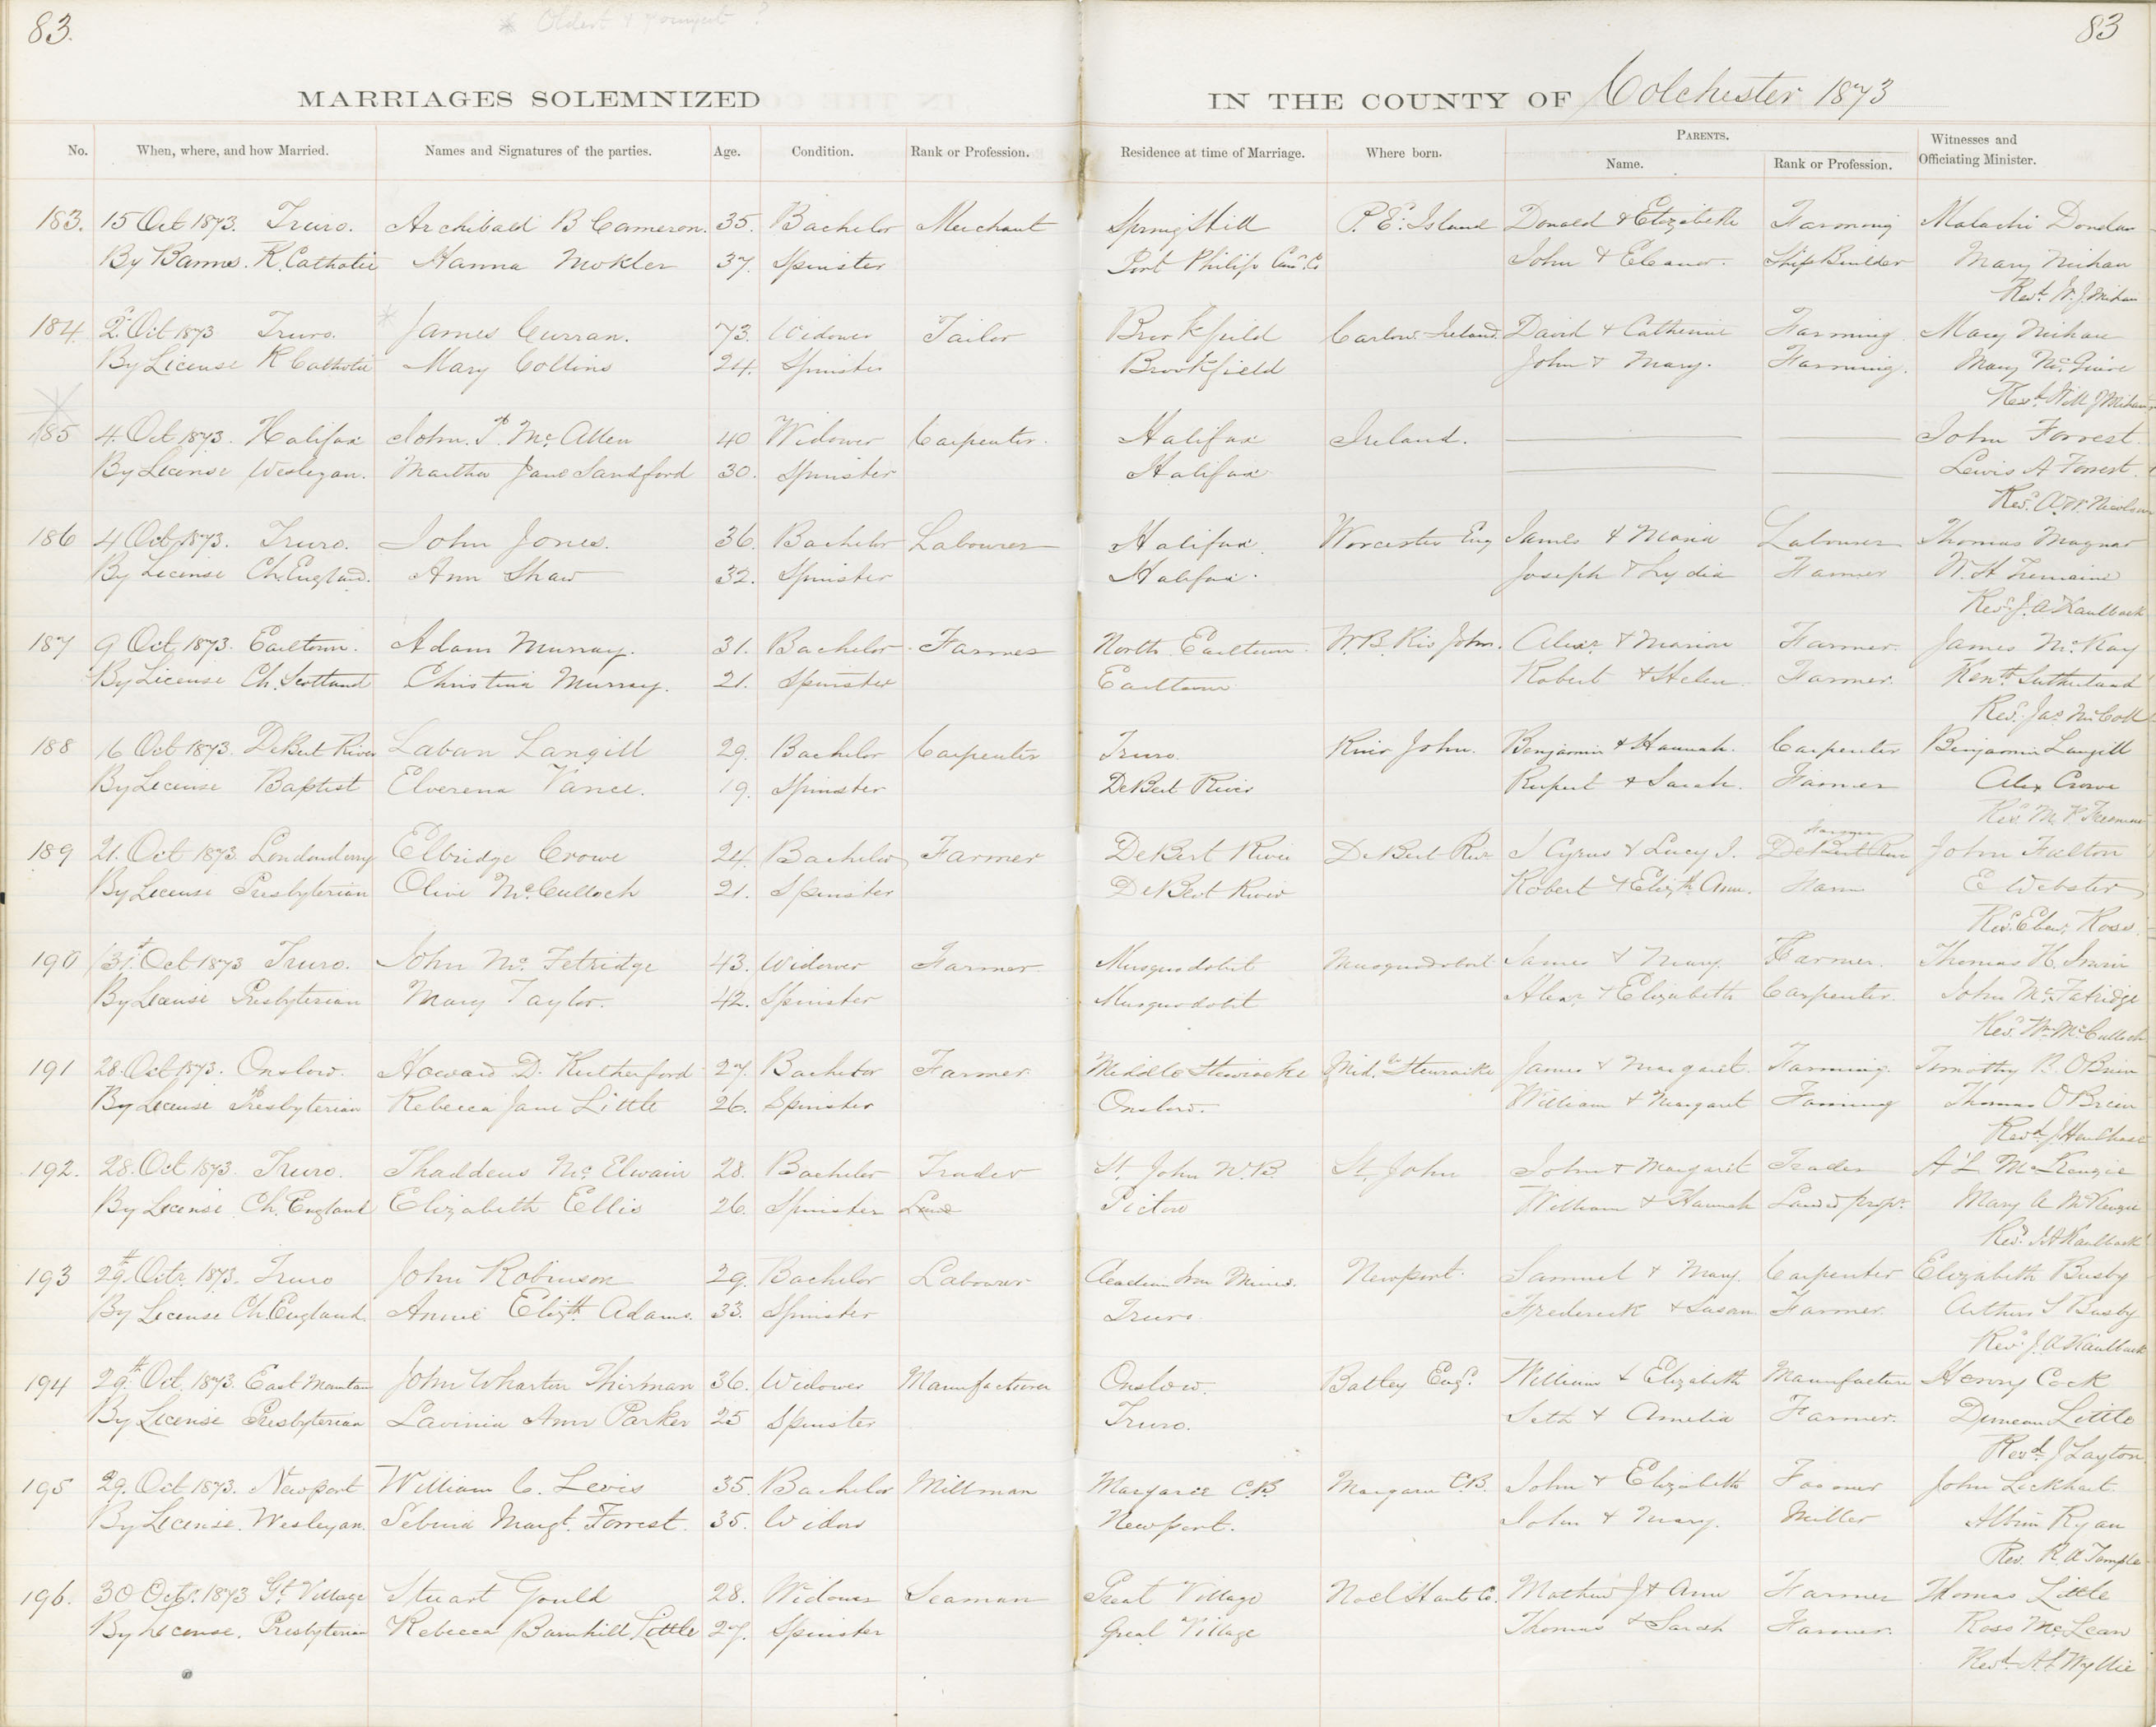 83. * Oldest & youngest ? 83
MARRIAGES SOLEMNIZED IN THE COUNTY OF Colchester 1873
No. When, where, and how Married. Names and Signatures of the parties. Age. Condition. Rank or Profession. Residence at time of Marriage. Where born. PARENTS. Name. Rank or Profession. Witnesses and Officiating Minister.
183. 15 Oct 1873. Truro. Archibald B Cameron. 35. Bachelor Merchant Spring Hill P. E. Island Donald & Elizabeth Farming Malachi
By Banns. R. Catholic Hanna Mokler 37. Spinster Port Philip John & Eleanor. Ship Builder Mary Mihan
Revd. W. J. Mihan
184. 2d Oct 1873 Truro. James Curran. 73. Widower Tailor Brookfield Carlow Ireland. David & Catherine Farming Mary Mihan
By License R Catholic Mary Collins 24. Spinster Brookfield John & Mary. Farming. Mary McGuire
Revd. Will J Mihan
185 4. Oct 1873. Halifax John. McAllen 40 Widower Carpenter. Halifax Ireland. John Forrest
By License Wesleyan. Martha Jane Sandford 30. Spinster Halifax Lewis A Forrest.
Revd. A. W. Nicolson
186 4 Oct 1873. Truro. John Jones. 36. Bachelor Labourer Halifax Worcester Eng James & Maria Labourer Thomas
By License Ch. England. Ann Shaw 32. Spinster Halifax. Joseph & Lydia Farmer W. H Tremaine
Revd. J. A Kaulback
187 9 Oct 1873. Earltown. Adam Murray. 31. Bachelor Farmer North Earltown W. B. Riv John. Alexr. & Marion Farmer. James McKay
By License Ch. Scotland Christina Murray. 21. Spinster Earltown Robert & Helen Farmer. Kenth. Sutherland
Revd. Jas. McColl
188 16 Oct 1873. DeBert River Laban Langill 29. Bachelor Carpenter Truro. River John. Benjamin & Hannah. Carpenter Benjamin Langill
By License Baptist Elverena Vance. 19. Spinster DeBert River Rupert & Sarah. Farmer Alex Crowe
Revd M. P. Freeman
189 21. Oct 1873. Londonderry Elbridge Crowe 24. Bachelor Farmer DeBert River DeBert Rivr J Cyrus & Lucy J. Farmer John Fulton
By License Presbyterian Olive McCulloch 21. Spinster DeBert River Robert & Elizth. Ann. Farm E Webster
Revd. Eben. Ross
190 31st. Oct 1873 Truro. John McFetridge 43. Widower Farmer Musquodobit Musquodobit James & Mary. Farmer. Thomas H. Irwin
By License Presbyterian Mary Taylor. 42. Spinster Musquodobit Alexr. & Elizabeth Carpenter. John McFetridge
Revd. Wm. McCulloch
191 28. Oct 1873. Onslow. Howard D. Rutherford 27. Bachelor Farmer. Middle Stewiacke Midle. Stewiacke James & Margaret. Farming. Timothy P. OBrien
By License Presbyterian Rebecca Jane Little 26. Spinster Onslow. William & Margaret Farming Thomas OBrien
Revd. J Hen Chase
192. 28. Oct 1873. Truro. Thaddeus McElwain 28. Bachelor Trader St. John N. B. St. John John & Margaret Trader A L McKenzie
By License Ch. England Elizabeth Ellis 26. Spinster Land Pictou William & Hannah Landed propr. Mary A McKenzie
Revd. J A Kaulback
193 29th. Octr. 1873. Truro John Robinson 29. Bachelor Labourer Acadian Iron Mines. Newport. Samuel & Mary. Carpenter Elizabeth Busby
By License Ch. England. Annie Elizth. Adams. 33. Spinster Truro. Frederick & Susan Farmer. Arthur S Busby
Revd J. A Kaulback
194 29th. Oct. 1873. East Mountain John Wharton Thirman 36. Widower Manufacturer Onslow. Batley Engd. William & Elizabeth Manufacturer Henry Cock
By License Presbyterian Lavinia Ann Parker 25 Spinster Truro. Seth & Amelia Farmer. Duncan Little
Revd. J Layton
195 29. Oct 1873. Newport William C. Levis 35. Bachelor Millman Margaree C.B. Margaree C.B. John & Elizabeth Farmer John Lockhart
By License. Wesleyan. Sebina Margt. Forrest. 35. Widow Newport. John & Mary. Miller Albin Ryan
Rev. R. A Temple
196. 30 Octr. 1873 Gt. Village Stuart Gould 28. Widower Seaman Great Village Noel Hants Co. Mathew J & Ann Farmer Thomas Little
By License. Presbyterian Rebecca Barnhill Little 27. Spinster Great Village Thomas & Sarah Farmer. Ross McLean
Revd. A. L Wyllie